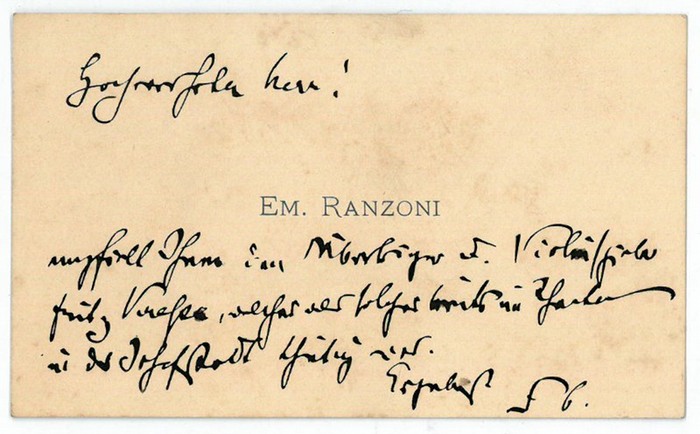 Hochverehrter Herr!
EM. RANZONI
empfiehlt Ihnen den Überbringer d. Violinspieler
Fritz, welcher als solcher bereits im Theater
in der Josefstadt thätig war.
Ergebenst